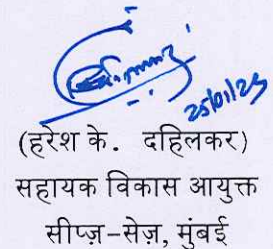 25/01/25
(हरेश के. दहिलकर)
सहायक विकास आयुक्त
सीप्ज़-सेज़, मुंबई